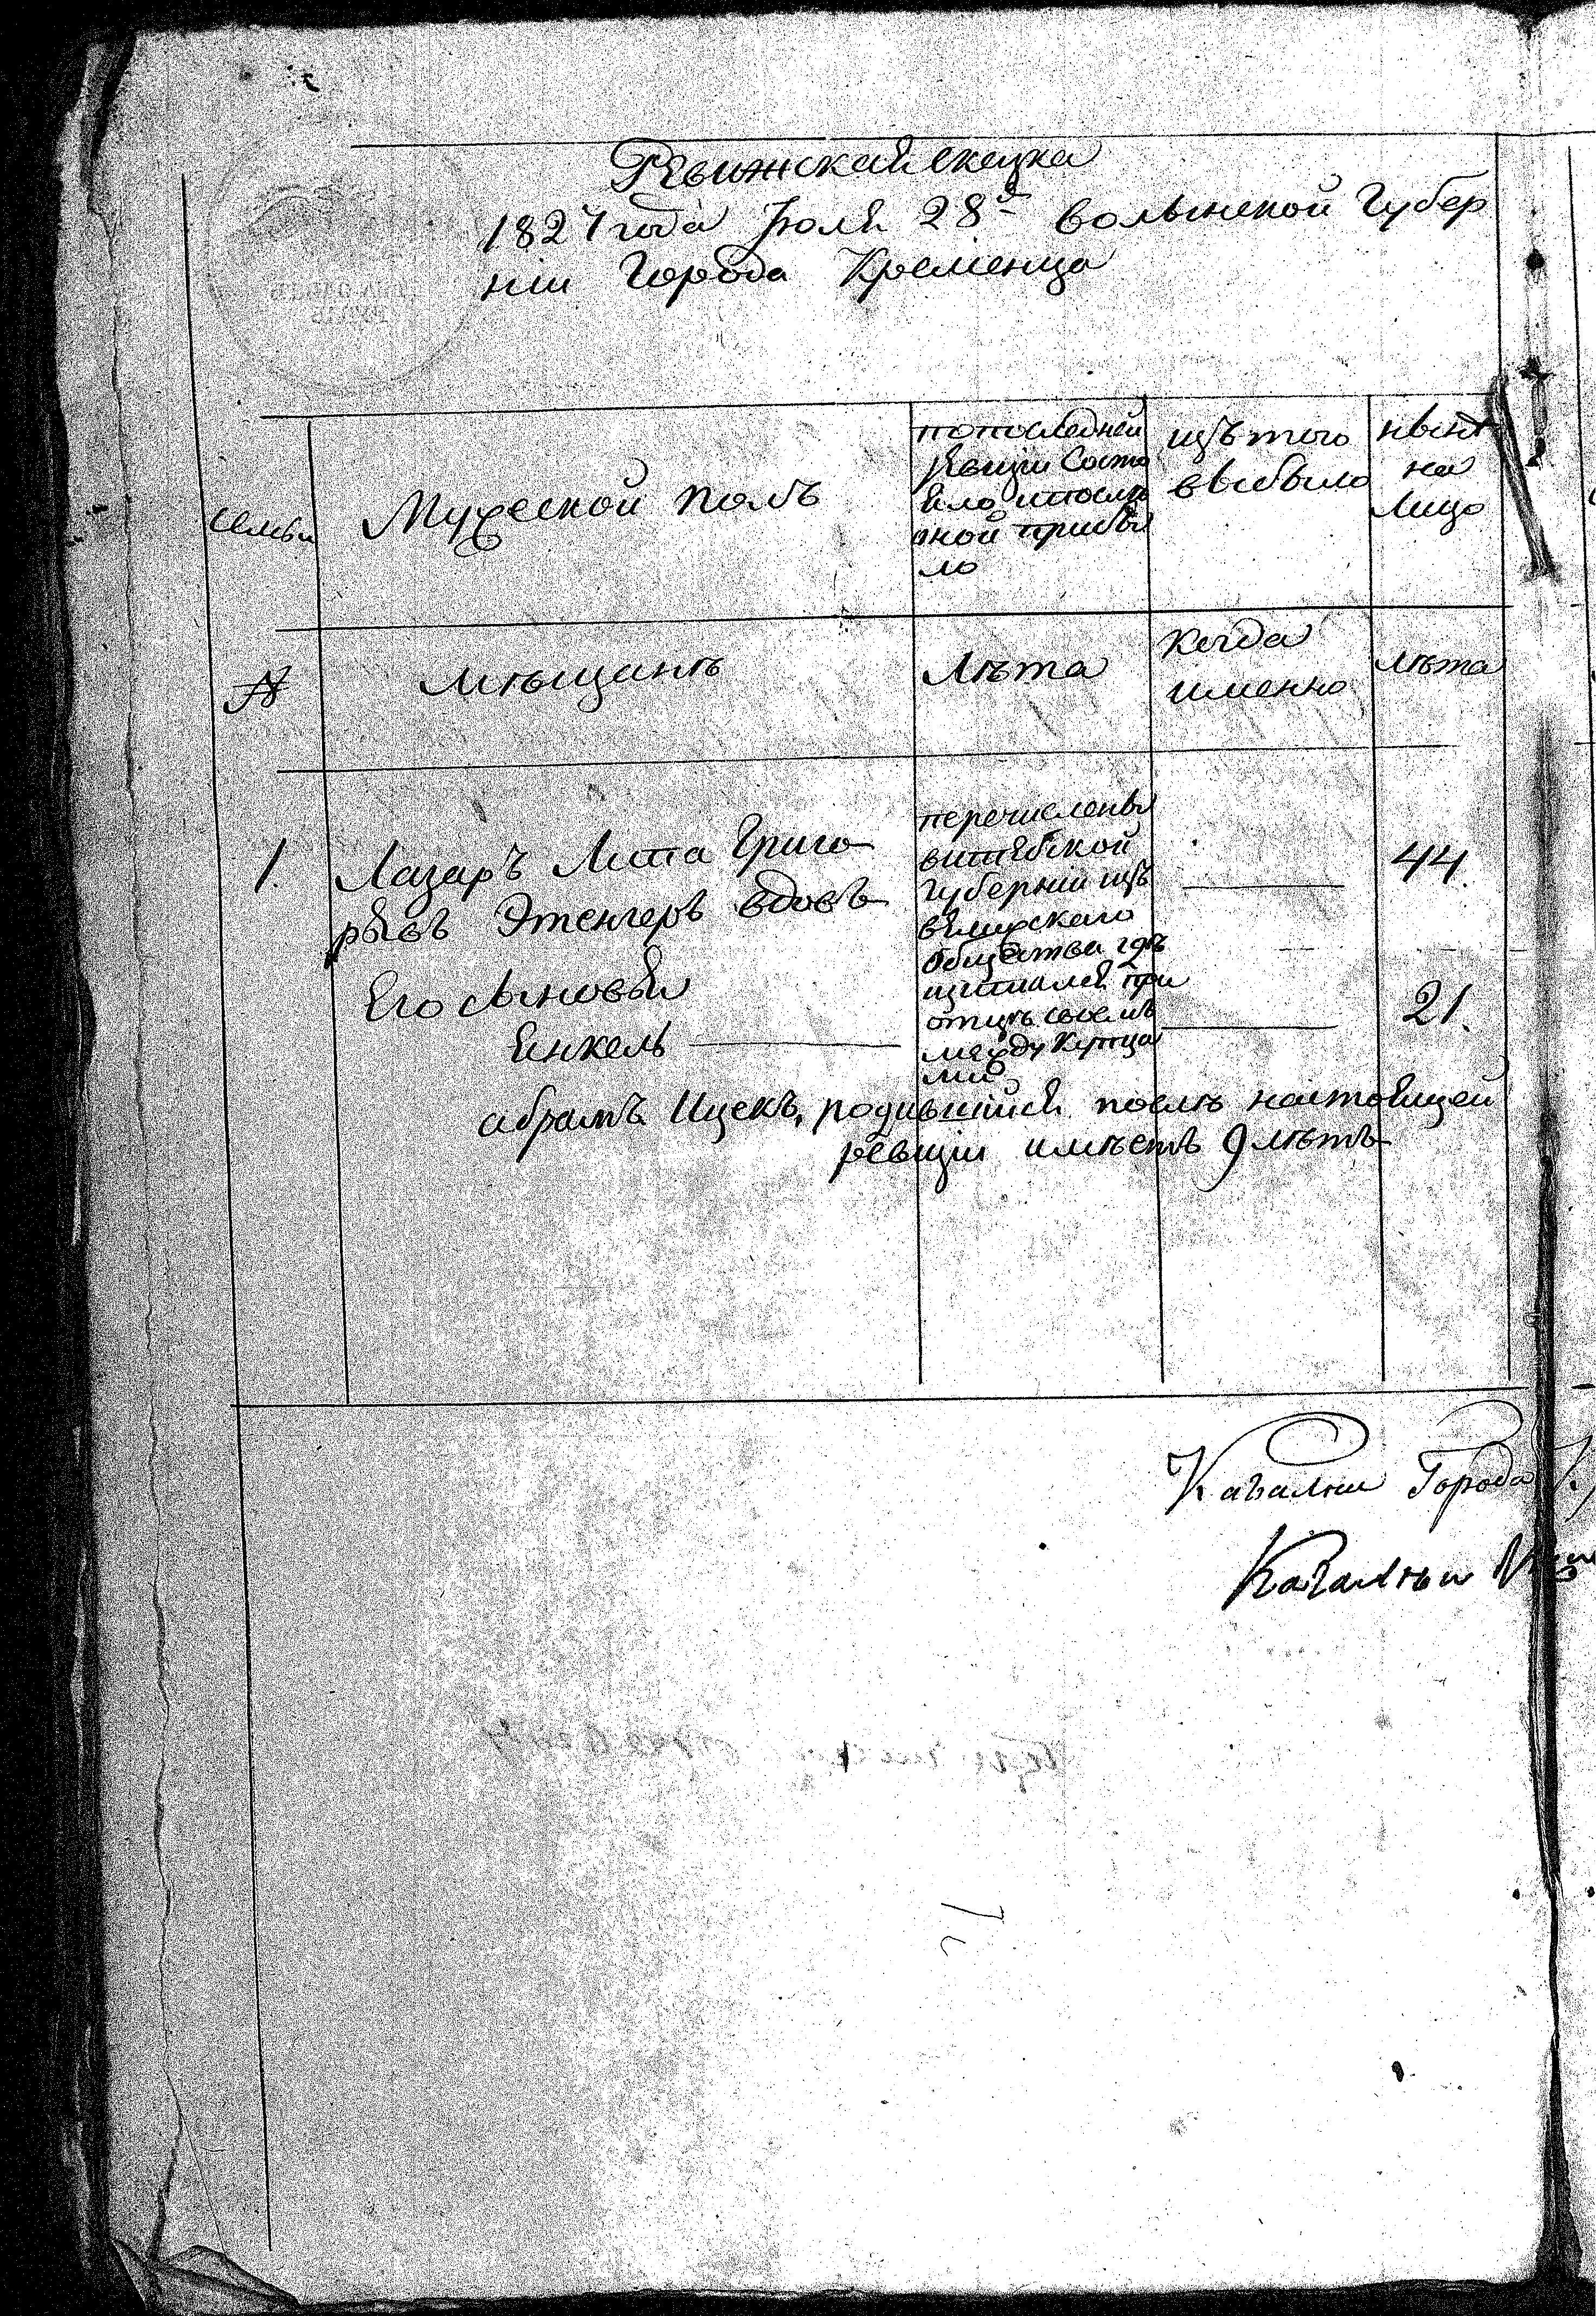 Ревижская скаска
1827 года Июля 28д Волынской Губер
ніи Города Кременца
Семьи
Мужеской полъ
попоследней
ревизіи Состо
яло ипослѣ
оной прибы
ло
изъ того
выбыло
нынѣ
на
Лицо
№
мѣщанъ
Лѣта
Когда
именно
лѣта
1.
Лазаръ Липа Григо
рьевъ Этенгеръ вдовъ
перечислены
витебской
губерніи изъ
велижскаго
общества гдѣ
щиталсе при
отцѣ своемъ
между Купца
ми
44.
Его Сыновья
Янкель
21.
абрамъ Ицекъ, родившійся послѣ настоящей
ревизіи имѣетъ 9 лѣтъ
Кагални Города
Кагалныи